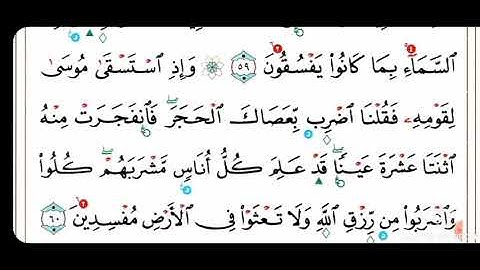 ٱلسَّمَآءِ بِمَا كَانُوا۟ يَفْسُقُونَ ٥٩ وَإِذِ ٱسْتَسْقَىٰ مُوسَىٰ
لِقَوْمِهِۦ فَقُلْنَا ٱضْرِب بِّعَصَاكَ ٱلْحَجَرَ ۖ فَٱنفَجَرَتْ مِنْهُ
ٱثْنَتَا عَشْرَةَ عَيْنًا ۖ قَدْ عَلِمَ كُلُّ أُنَاسٍ مَّشْرَبَهُمْ ۖ كُلُوا۟
وَٱشْرَبُوا۟ مِن رِّزْقِ ٱللَّهِ وَلَا تَعْثَوْا۟ فِى ٱلْأَرْضِ مُفْسِدِينَ ٦٠